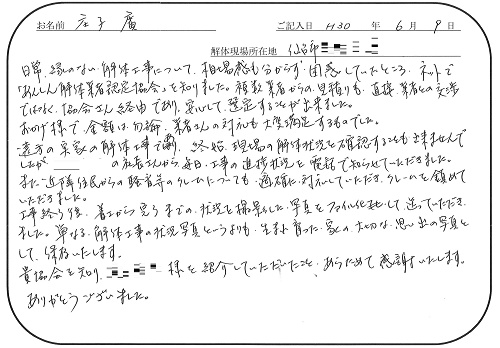 お名前 庄子 廣 ご記入日 H30 年 6 月 9 日
解体現場所在地 仙台市
日常、縁のない解体工事について、相場感も分からず困惑していたところ、ネットで
「あんしん解体業者認定協会」を知りました。複数業者からの見積りも、直接業者との交渉
ではなく、協会さん経由であり、安心して選定することが出来ました。
おかげ様で、金額は勿論、業者さんの対応も大変満足するものでした。
遠方の実家の解体工事で、終始、現場の解体状況を確認することも出来ませんで
したが、 の業者さんから、毎日、工事の進捗状況を電話で知らせていただきました。
また近隣住民からの騒音等のクレームについても、適確に対応していただき、クレームを鎮めて
いただきました。
工事終了後、着工から完了までの、状況を撮影した写真をファイル化して、送っていただき
ました。単なる、解体工事の状況写真というよりも、生まれ育った、家の大切な、思い出の写真と
して、保存いたします。
貴協会を知り、 様を紹介していただいたこと、あらためて感謝いたします。
ありがとうございました。